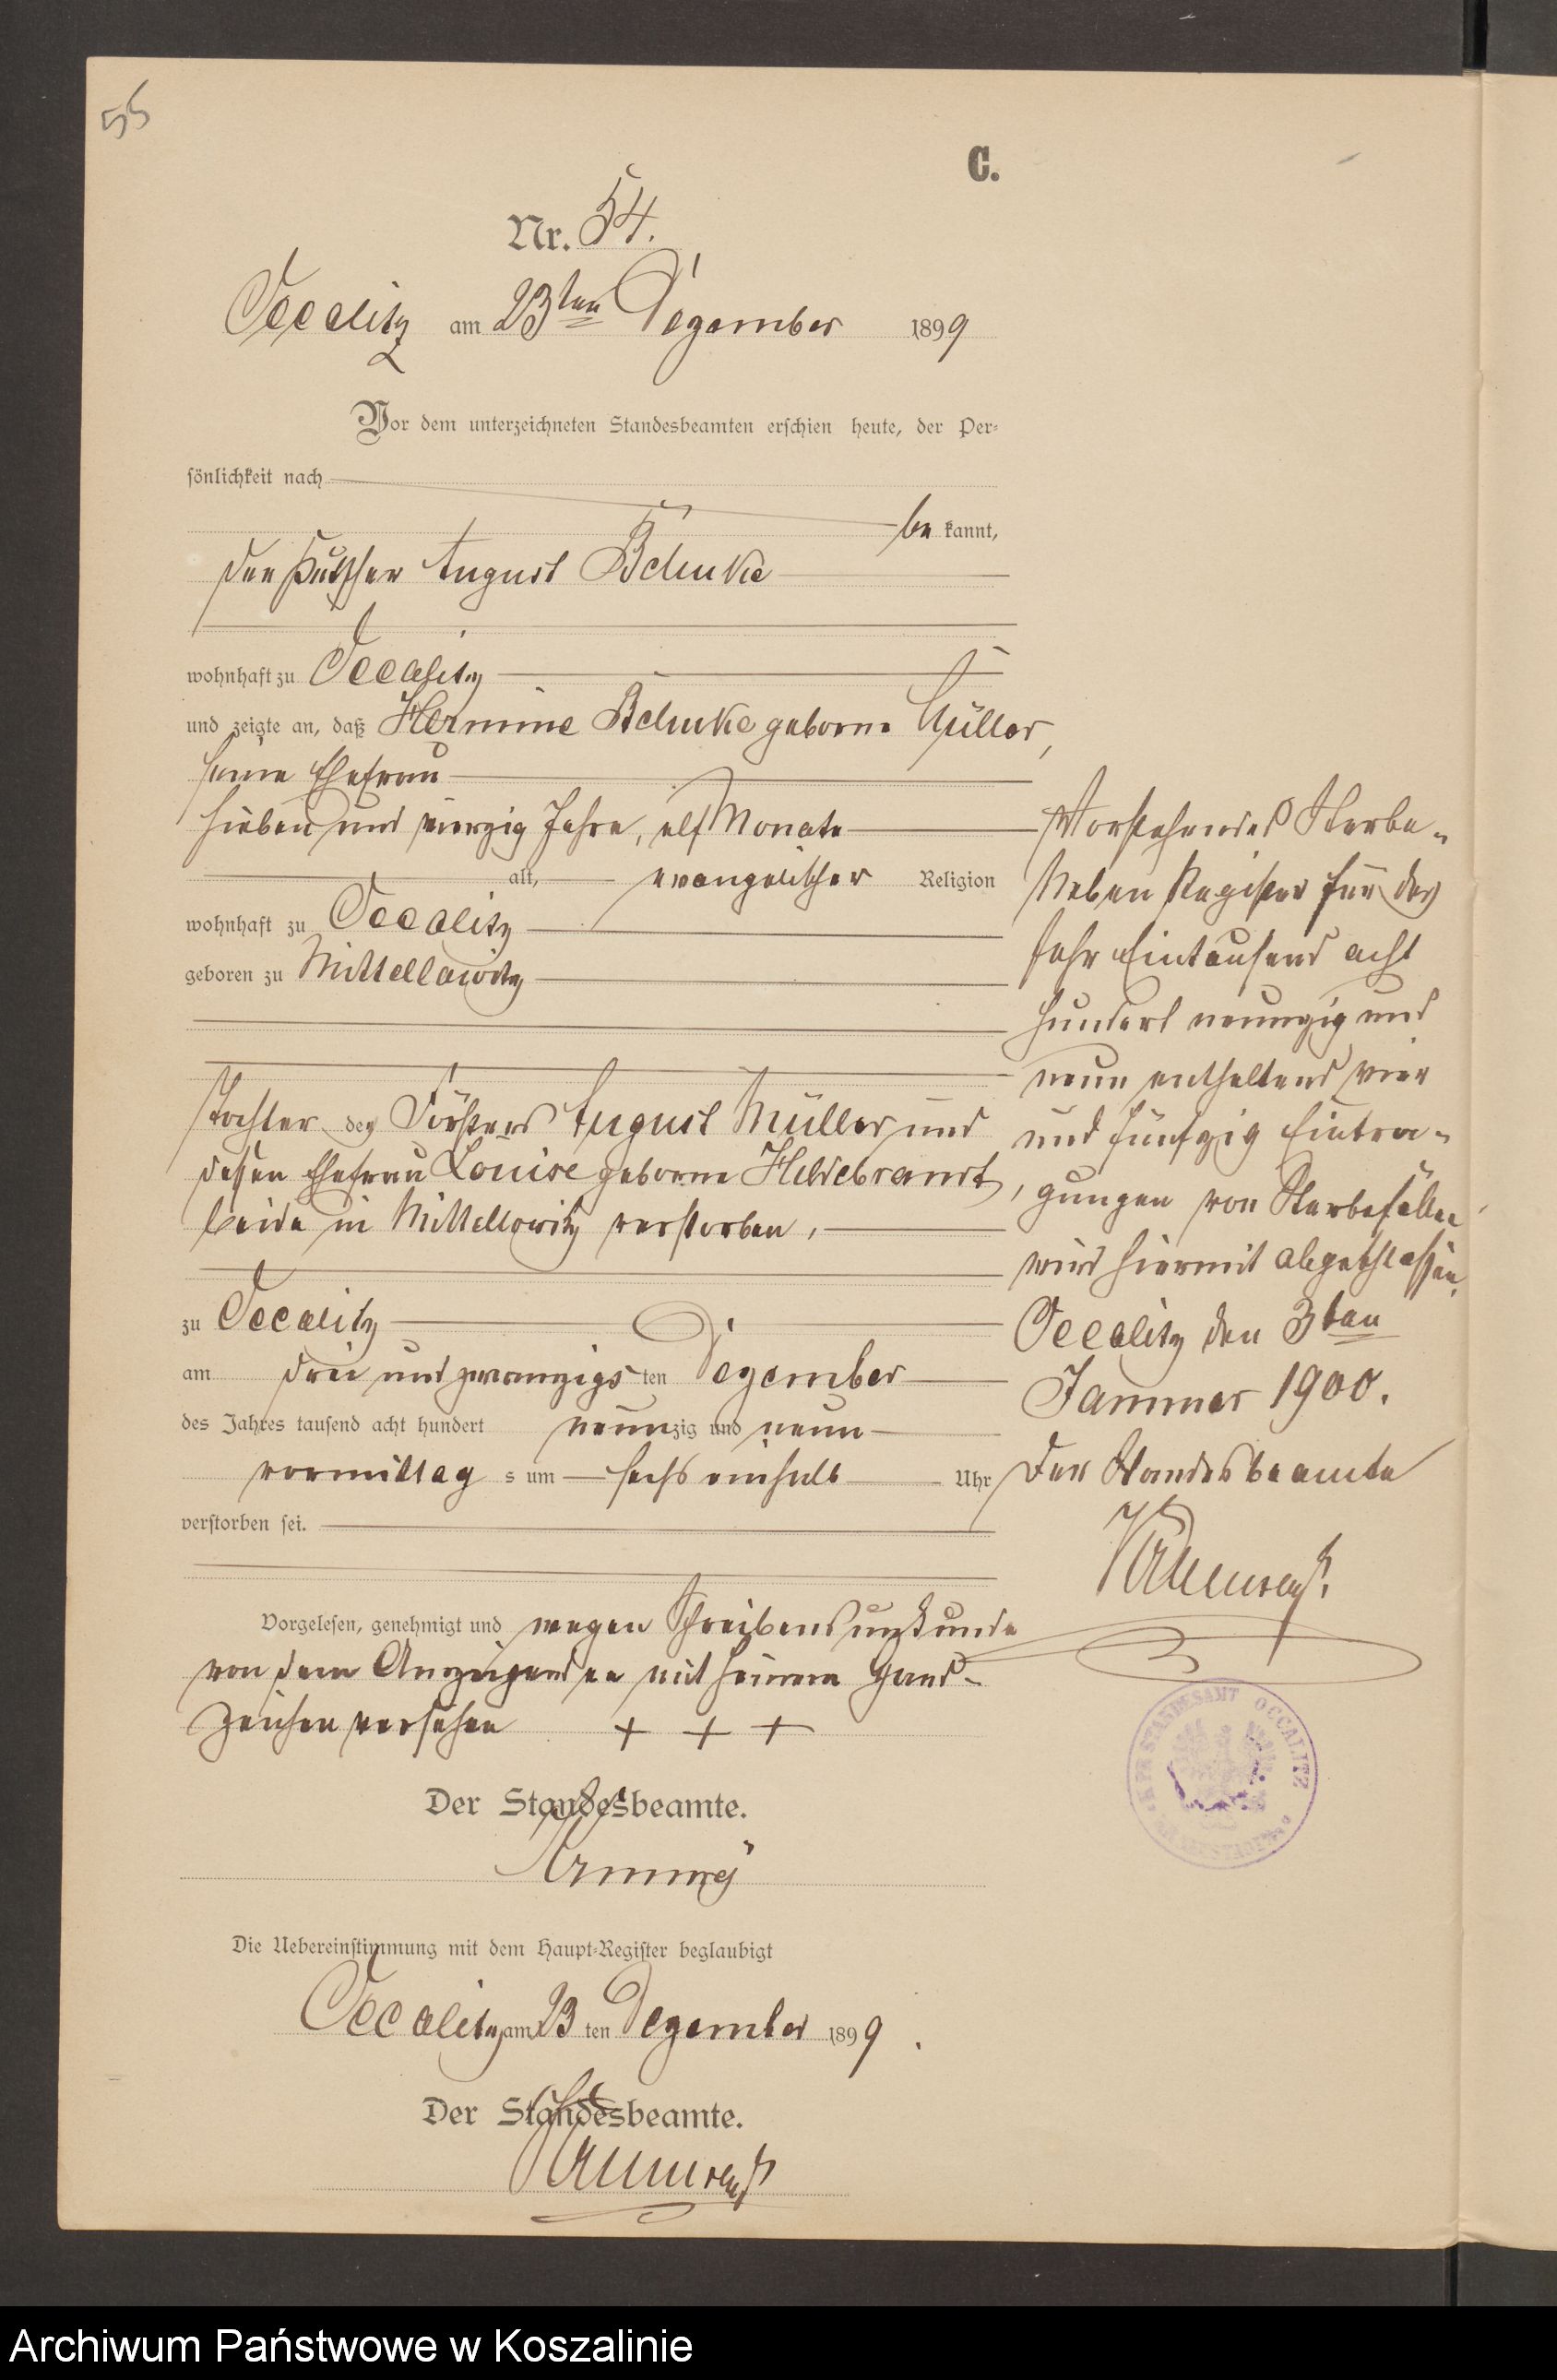 55
C.
Nr. 54.
Occalitz am 23ten Dezember 1899
Vor dem unterzeichneten Standesbeamten erschien heute, der Per-
sönlichkeit nach
be kannt,
der August Behnke
wohnhaft zu Occalitz
und zeigte an, daß Hermine Behnke geborne Müller,
seine Ehefrau
sieben und vierzig Jahre, elf Monate
alt, evangelischer Religion
wohnhaft zu Occalitz
geboren zu Mittellowitz
Tochter des Försters August Müller und
dessen Ehefrau Louise geborne Hildebrandt,
beide in Mittellowitz verstorben,
zu Occalitz
am drei und zwanzigs ten Dezember
des Jahres tausend acht hundert neun zig und neun
vormittag s um sechs einhalb Uhr
verstorben sei.
Vorgelesen, genehmigt und wegen Schreibensunkunde
von dem Anzeigenden mit seinem Hand-
zeichen versehen + + +
Der Standesbeamte.
Die Uebereinstimmung mit dem Haupt-Register beglaubigt
Occalitz am 23 ten Dezember 1899.
Der Standesbeamte.
Vorstehendes Sterbe-
Neben Register für das
Jahr Eintausend acht
hundert neunzig und
neun enthaltend vier
und fünfzig Eintra-
gungen von Sterbefällen
wird hiermit abgeschlossen.
Occalitz den 3ten
Januar 1900.
Der Standesbeamte
STANDESAMT OCCALITZ
Archiwum Państwowe w Koszalinie